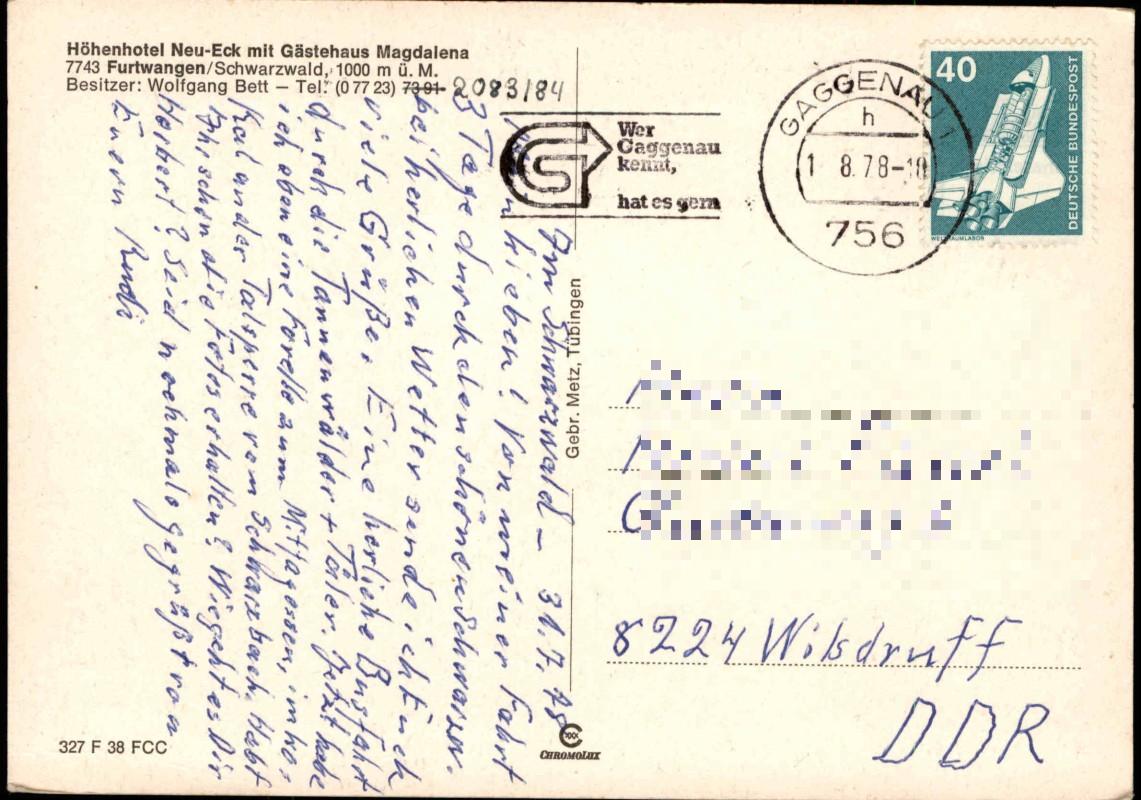 Höhenhotel Neu-Eck mit Gästehaus Magdalena
7743 Furtwangen/Schwarzwald, 1000 m ü. M.
Besitzer: Wolfgang Bett – Tel. (0 77 23) 73 91 2083/84
Wer
Gaggenau
kennt,
hat es gern
GAGGENAU 1
h
1 8.78-10
756
40
DEUTSCHE BUNDESPOST
WELTRAUMLABOR
Im Schwarzwald – 31.7.78
Ihr Lieben! Von meiner Fahrt
3 Tage durch den schönen Schwarzw.
bei herlichen Wetter sende ich Euch
viele Grüße. Eine herliche Busfahrt
durch die Tannenwälder + Täler. Jetzt habe
ich eben eine Forelle zum Mittagessen, im Lo-
kal an der Talsperre vom Schwarzbach. Habt
Ihr schon die Fotos erhalten? Wie geht es Dir
Herbert? Seid nochmals gegrüßt von
Euern Rudi
Gebr. Metz, Tübingen
8224 Wilsdruff
DDR
327 F 38 FCC
CHROMOLUX